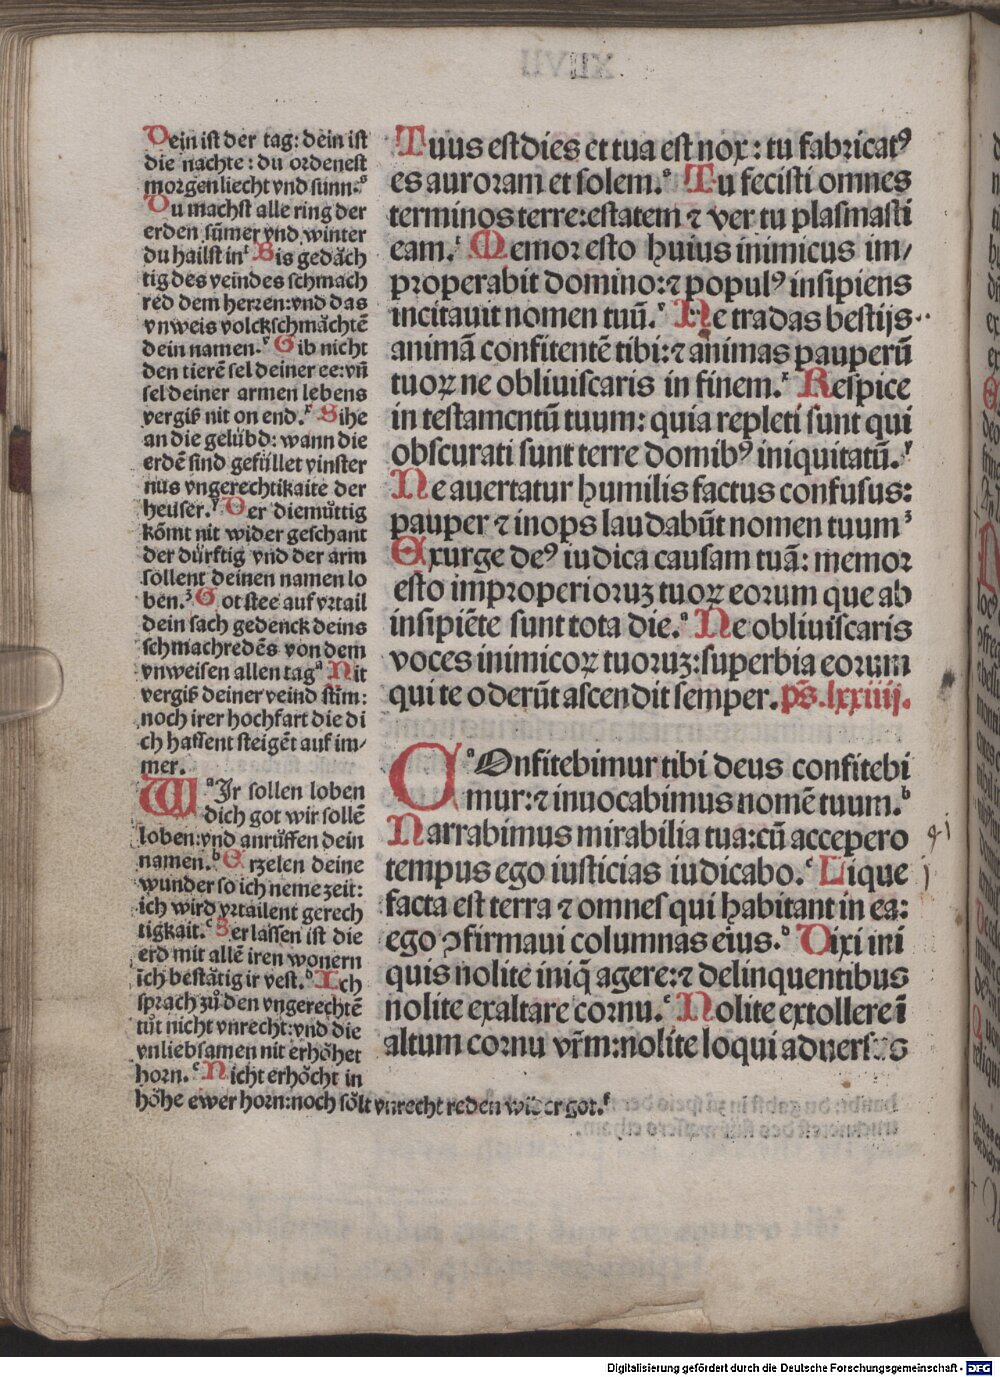 Dein ist der tag: dein ist
die nachte: du ordenest
morgenliecht vnd sunn.ˢ
Du machst alle ring der
erden sum̃er vnd winter
du hailst inᵗ Bis gedåch
tig des veindes schmach
red dem herren: vnd das
vnweis volck schmåchtē
dein namen.ᵛ Gib nicht
den tierē sel deiner ee: vñ
sel deiner armen lebens
vergiß nit on end.ˣ Sihe
an die gelübd: wann die
erdē sind gefüllet vinster
nus vngerechtikaite der
heuser.ʸ Der diemůttig
kõmt nit wider geschant
der dürftig vnd der arm
söllent deinen namen lo
ben.ᶻ Got stee auf vrtail
dein sach gedenck deins
schmachredēs von dem
vnweisen allen tagᵃ Nit
vergiß deiner veind stim̄:
noch irer hochfart die di
ch hassent steigēt auf im/
mer.
WᵃIr sollen loben
dich got wir sollē
loben: vnd anrůffen dein
namen.ᵇ Erzelen deine
wunder so ich neme zeit:
ich wird vrtailent gerech
tigkait.ᶜ Zerlassen ist die
erd mit allē iren wonern
ich bestätig ir vest.ᵈ Ich
sprach zů den vngerechtē
tůt nicht vnrecht: vnd die
vnliebsamen nit erhöhet
horn.ᵉ Nicht erhöcht in
höhe ewer horn: noch sölt vnrecht reden wider got.ᶠ
Tuus est dies et tua est nox: tu fabricatꝰ
es auroram et solem.ˢ Tu fecisti omnes
terminos terre: estatem ⁊ ver tu plasmasti
eam.ᵗ Memor esto huius inimicus im/
properabit domino: ⁊ populꝰ insipiens
incitauit nomen tuū.ᵛ Ne tradas bestijs
animā confitentē tibi: ⁊ animas pauperū
tuoꝝ ne obliuiscaris in finem.ˣ Respice
in testamentū tuum: quia repleti sunt qui
obscurati sunt terre domibꝰ iniquitatū.ʸ
Ne auertatur humilis factus confusus:
pauper ⁊ inops laudabūt nomen tuumᶻ
Exurge deꝰ iudica causam tuā: memor
esto improperioruꝫ tuoꝝ eorum que ab
insipiēte sunt tota die.ᵃ Ne obliuiscaris
voces inimicoꝝ tuoruꝫ: superbia eorum
qui te oderūt ascendit semper. ps̄. lxxiiij.
CᵃOnfitebimur tibi deus confitebi
mur: ⁊ inuocabimus nomē tuum.ᵇ
Narrabimus mirabilia tua: cū accepero
tempus ego iusticias iudicabo.ᶜ Lique
facta est terra ⁊ omnes qui habitant in ea:
ego ꝯfirmaui columnas eius.ᵈ Dixi ini
quis nolite iniq̄ agere: ⁊ delinquentibus
nolite exaltare cornu.ᵉ Nolite extollere ī
altum cornu vr̄m: nolite loqui aduersus
Digitalisierung gefördert durch die Deutsche Forschungsgemeinschaft - DFG